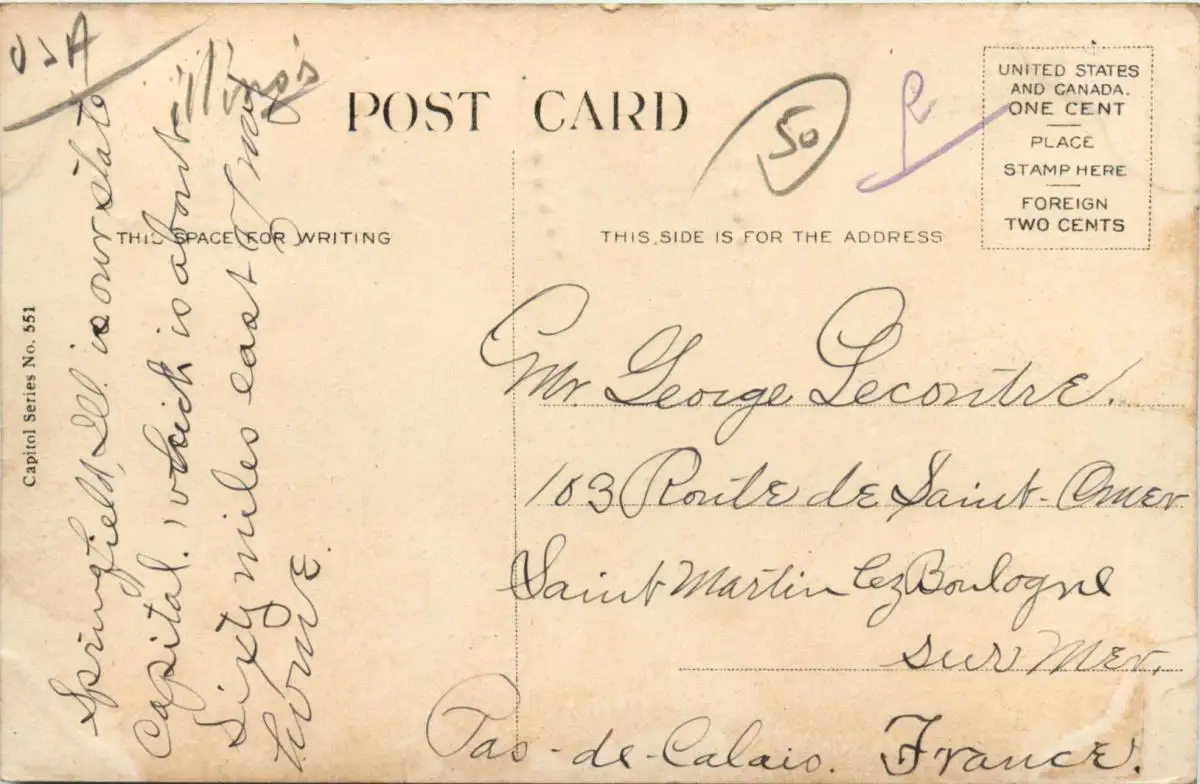 USA
illinois
POST CARD
50
UNITED STATES
AND CANADA.
ONE CENT
PLACE
STAMP HERE
FOREIGN
TWO CENTS
THIS SPACE FOR WRITING
THIS SIDE IS FOR THE ADDRESS
Capitol Series No. 551
Springfield, Ill. is our state
Capital. which is about
Sixty miles east of my
home.
Mr. George Lecontre.
103 Route de Saint-Omer
Saint Martin lez Boulogne
sur Mer.
Pas-de-Calais. France.